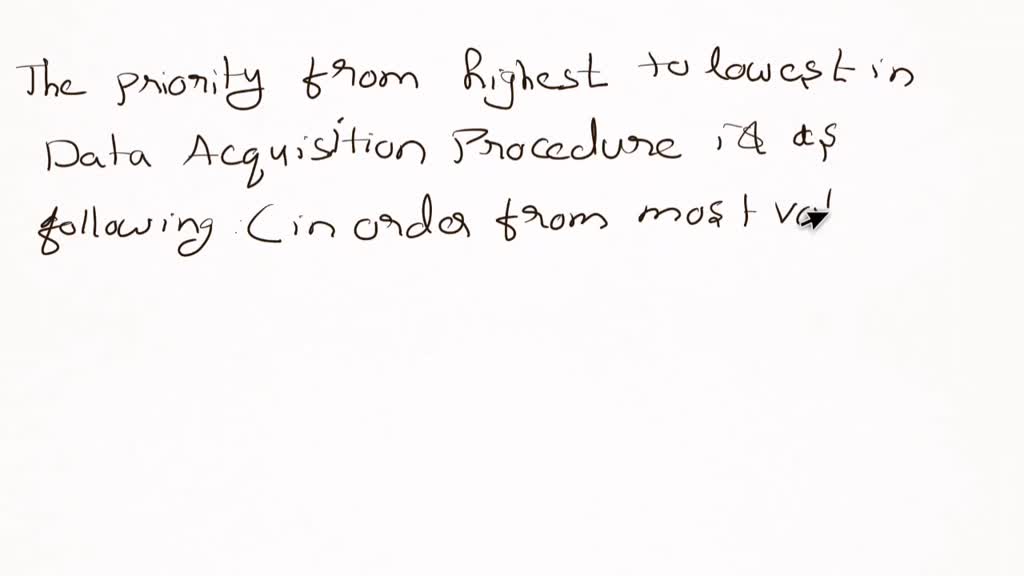 The priority from highest to lowest in
Data Acquisition Procedure is as
following (in order from most